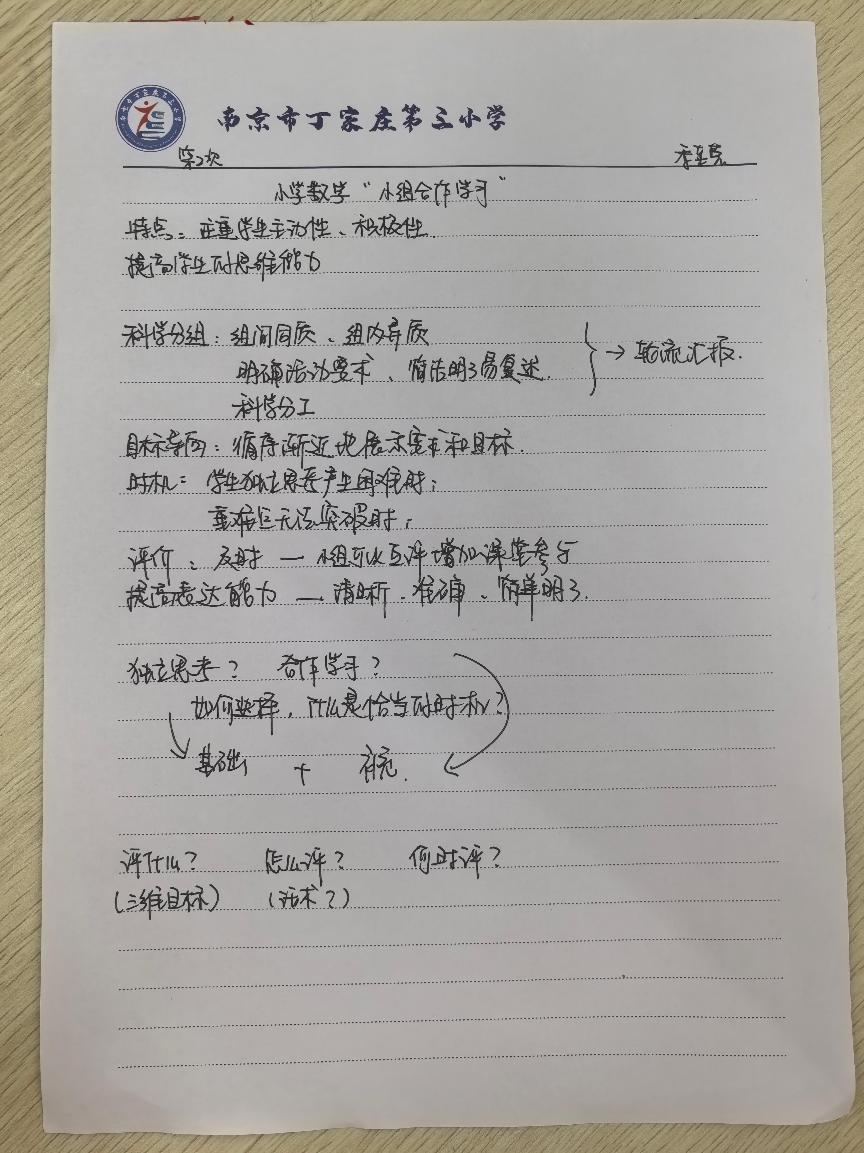 南京市丁家庄第三小学
第2次
小学数学“小组合作学习”
特点：注重学生主动性、积极性.
提高学生的思维能力
科学分组：组间同质、组内异质
明确活动要求、简洁明了易复述.
→ 轮流汇报.
科学分工
目标导向：循序渐近地展示要求和目标.
时机：学生独立思考产生困难时；
重难点无法突破时；
评价：及时 — 小组可以互评增加课堂参与
提高表达能力 — 清晰、准确、简单明了.
独立思考？ 合作学习？
如何选择，什么是恰当的时机？
基础 + 补充.
评什么？ 怎么评？ 何时评？
(三维目标) (话术？)